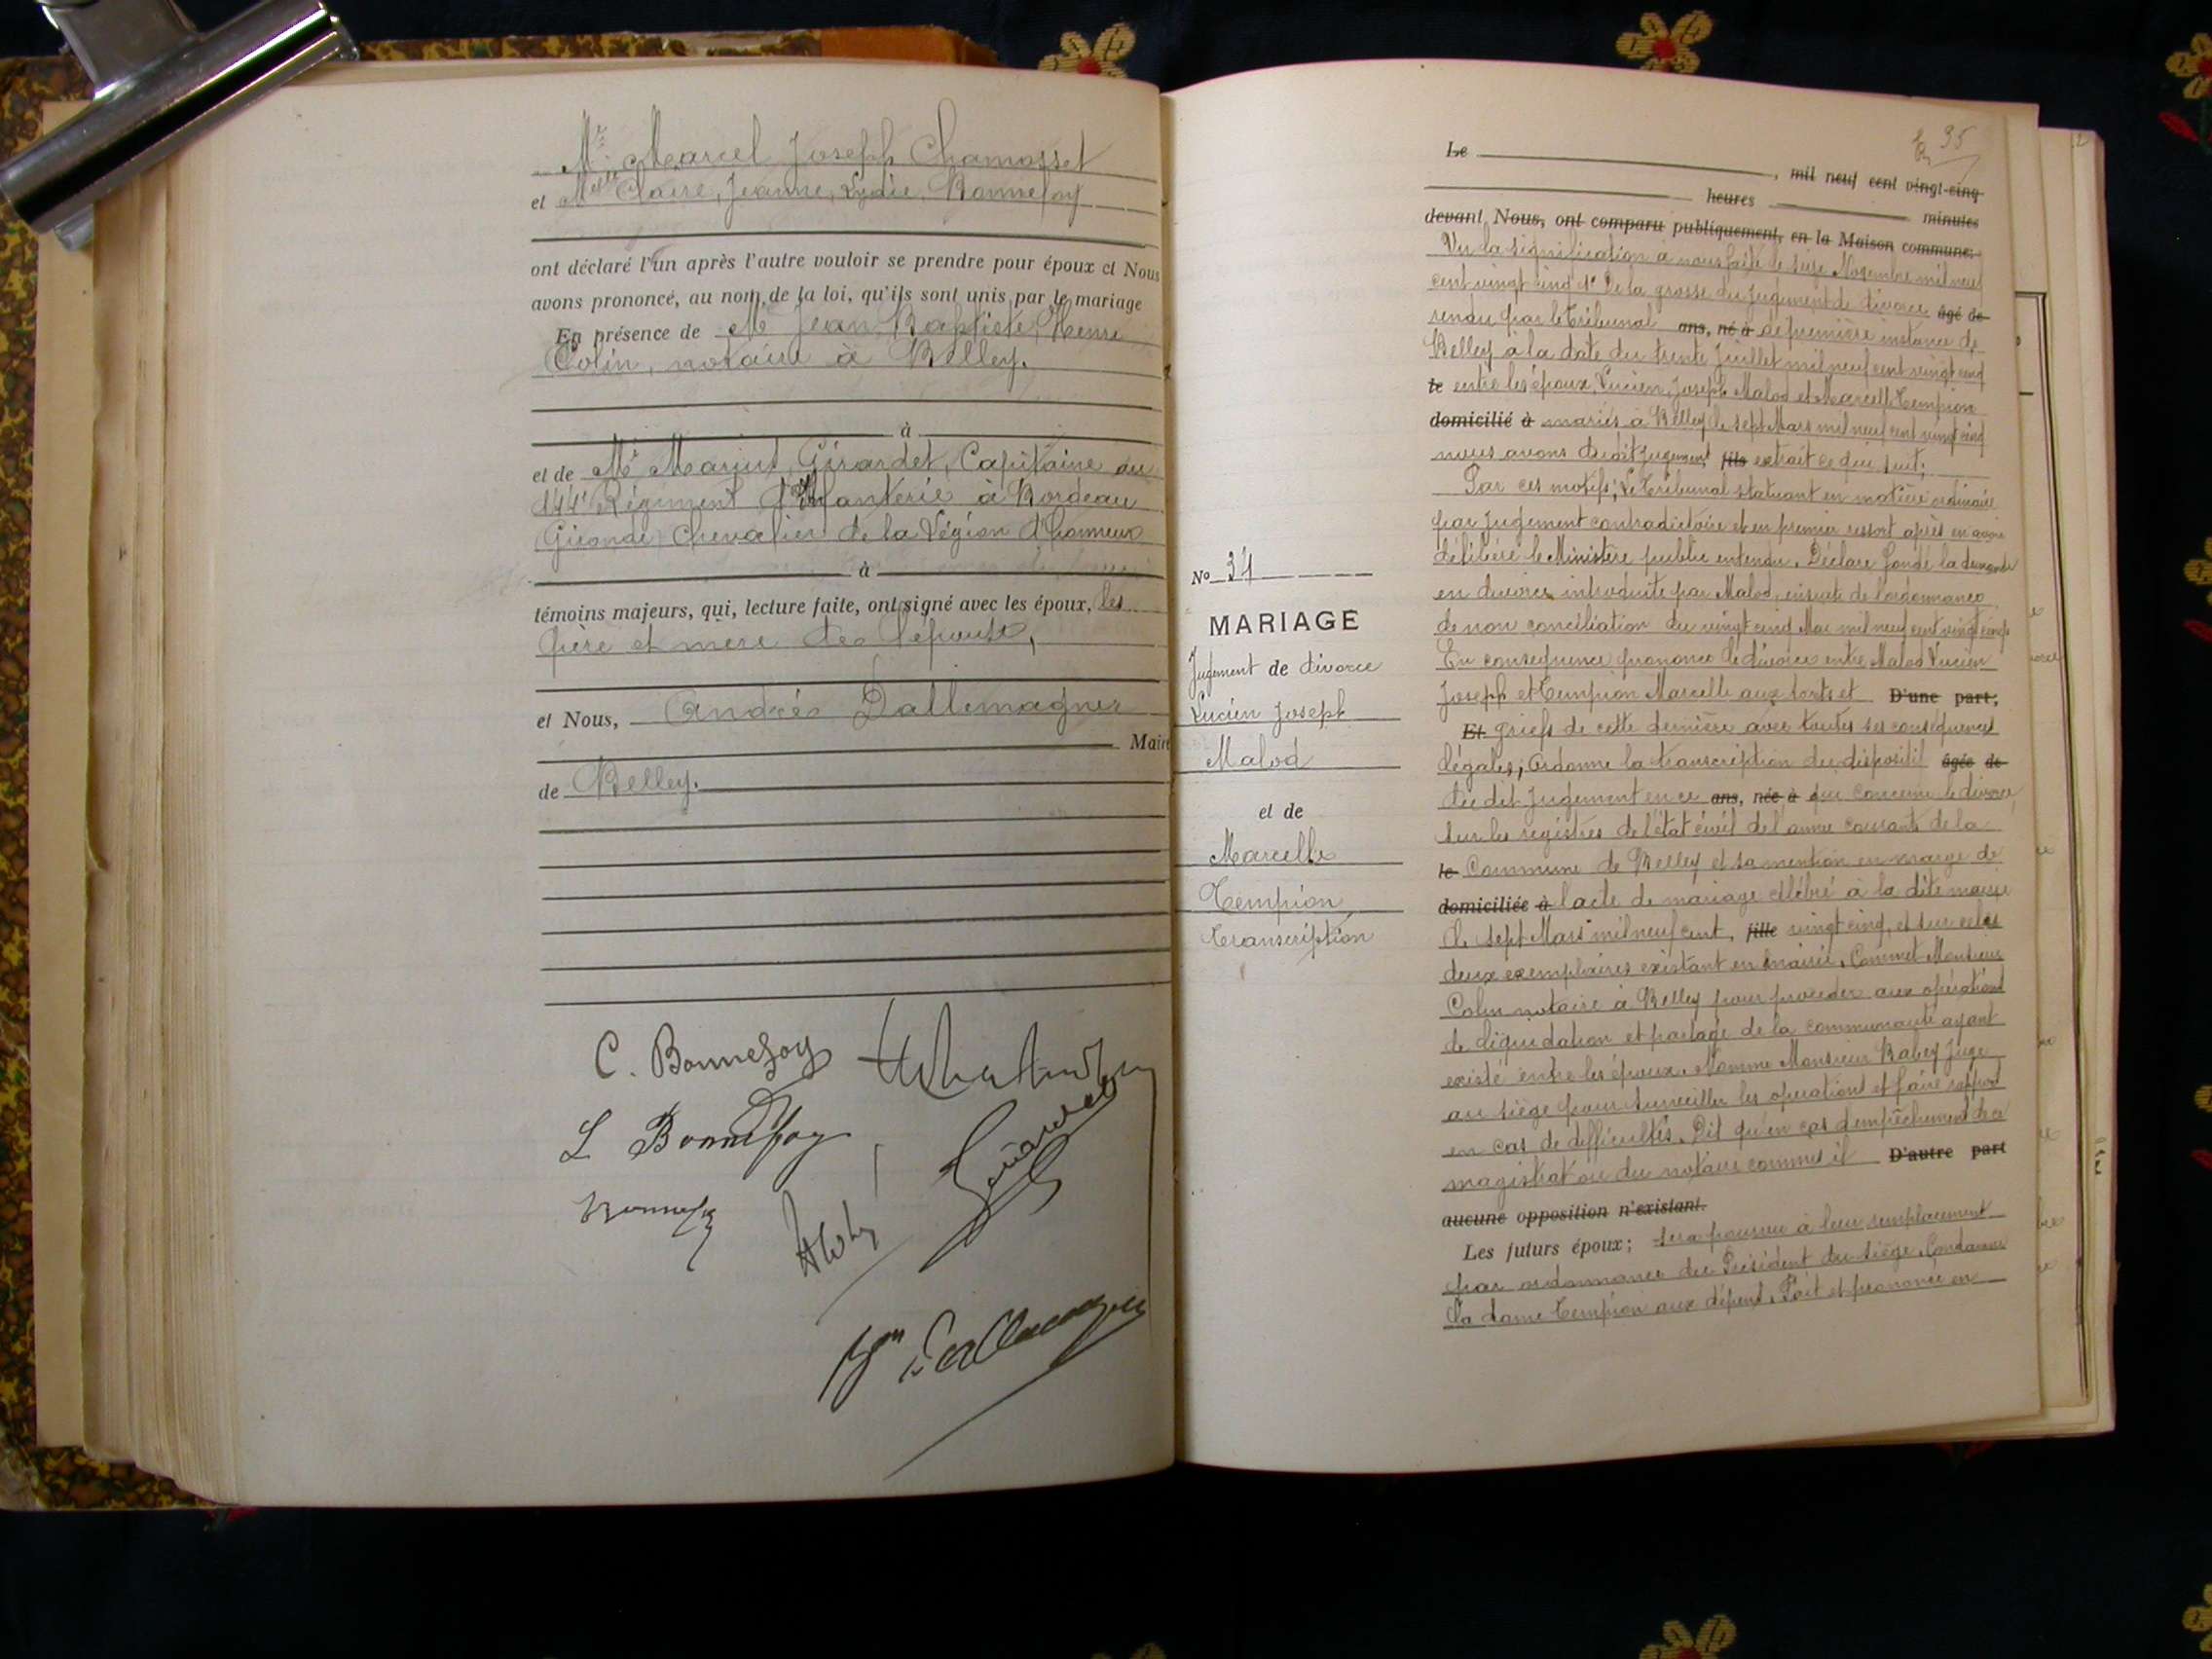 Mr Marcel Joseph Chamosset
et Melle Claire, Jeanne, Lydie, Bonnefoy
ont déclaré l'un après l'autre vouloir se prendre pour époux et Nous
avons prononcé, au nom de la loi, qu'ils sont unis par le mariage
En présence de Mr Jean Baptiste, Henri
Colin, notaire à Belley.
à
et de Mr Marius, Girardet, Capitaine au
144e Régiment d'Infanterie à Bordeau
Gironde) Chevalier de la Légion d'honneur
à
témoins majeurs, qui, lecture faite, ont signé avec les époux, les
père et mère de l'épouse,
et Nous, André Dallemagne
Maire
de Belley.
C. Bonnefoy
L Bonnefoy
Girardet
Dallemagne
35
No 34
MARIAGE
Jugement de divorce
Lucien Joseph
Malod
et de
Marcelle
Tempion
Transcription
Le , mil neuf cent vingt-cinq
heures minutes
devant Nous, ont comparu publiquement, en la Maison commune:
Vu la signification à nous faite le seize Novembre mil neuf
cent vingt cinq 1° De la grosse du Jugement de divorce âgé de
rendu par le Tribunal ans, né à de première instance de
Belley à la date du trente Juillet mil neuf cent vingt cinq
le entre les époux Lucien, Joseph Malod et Marcelle Tempion
domicilié à mariés à Belley le sept Mars mil neuf cent vingt cinq
nous avons du dit Jugement fils extrait ce qui suit:
Par ces motifs; Le Tribunal statuant en matière ordinaire
par Jugement contradictoire et en premier ressort après en avoir
délibéré le Ministère public entendu. Déclare fondé la demande
en divorce introduite par Malod, ensuite de l'ordonnance
de non conciliation du vingt cinq Mai mil neuf cent vingt cinq
En conséquence prononce le divorce entre Malod Lucien
Joseph et Tempion Marcelle aux torts et D'une part;
Et griefs de cette dernière avec toutes ses conséquences
légales; Ordonne la transcription du dispositif âgée de
du dit Jugement en ce ans, née à qui concerne le divorce
sur les registres de l'état civil de l'année courante de la
le Commune de Belley et sa mention en marge de
domiciliée à l'acte de mariage célébré à la dite mairie
le sept Mars mil neuf cent, fille vingt cinq, et sur
deux exemplaires existant en mairie. Commet Monsieur
Colin notaire à Belley pour procéder aux opérations
de liquidation et partage de la communauté ayant
existé entre les époux. Nomme Monsieur Rabey Juge
au siège pour surveiller les opérations et faire rapport
en cas de difficultés. Dit qu'en cas d'empêchement de ce
magistrat ou du notaire commis il D'autre part
aucune opposition n'existant.
Les futurs époux; sera pourvu à leur remplacement
par ordonnance du Président du siège. Condamne
la dame Tempion aux dépens. Fait et prononcé en